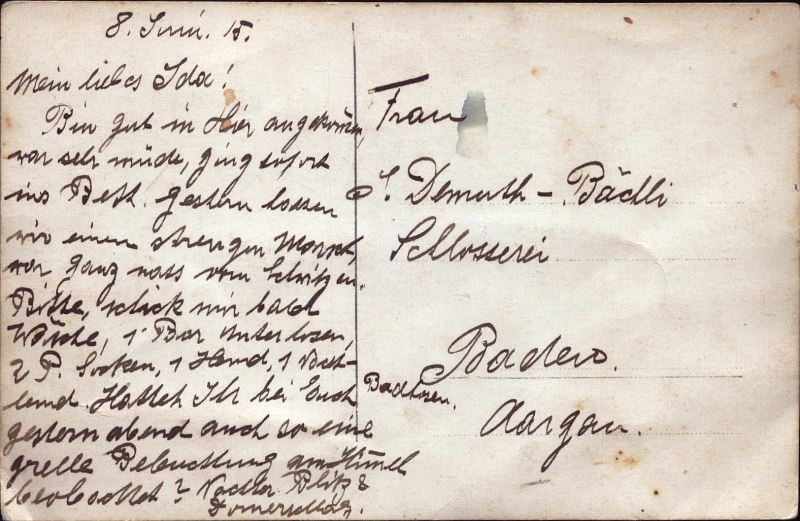 8. Juni. 15.
Mein liebes Ida!
Bin gut in Hier angekom̅en,
war sehr müde, ging sofort
ins Bett. Gestern
wir einen strengen Marsch,
war ganz nass vom Schwitzen.
Bitte, schick mir bald
Wäsche, 1 Par Unterhosen,
2 P. Socken, 1 Hemd, 1 Nacht-
hemd. Hattet Ihr bei Euch
gestern abend auch so eine
grelle Beleuchtung am Him̅el
beobachtet? Blitz &
Donnerschlag.
Frau
Demuth-Bächli
Schlosserei
Baden.
Aargau.